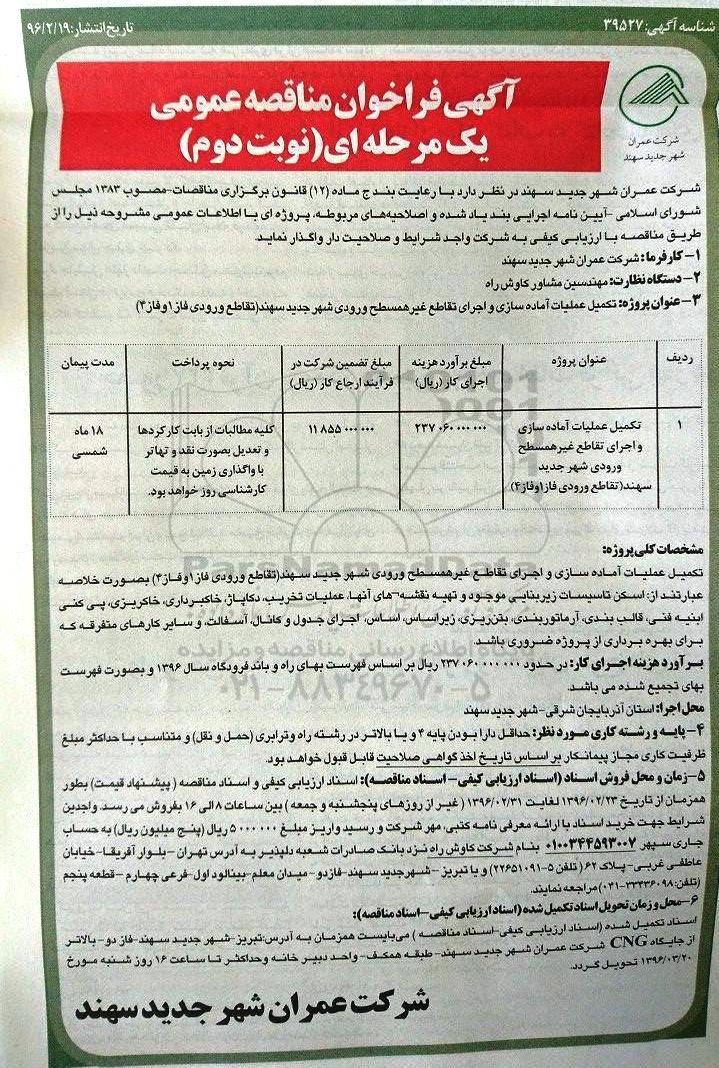 شناسه آگهی: ۳۹۵۲۷
تاریخ انتشار: ۹۶/۲/۱۹
شرکت عمران
شهر جدید سهند
آگهی فراخوان مناقصه عمومی
یک مرحله ای (نوبت دوم)
شرکت عمران شهر جدید سهند در نظر دارد با رعایت بند ج ماده (۱۲) قانون برگزاری مناقصات-مصوب ۱۳۸۳ مجلس
شورای اسلامی -آیین نامه اجرایی بند یاد شده و اصلاحیه‌های مربوطه، پروژه ای با اطلاعات عمومی مشروحه ذیل را از
طریق مناقصه با ارزیابی کیفی به شرکت واجد شرایط و صلاحیت دار واگذار نماید.
۱- کارفرما: شرکت عمران شهر جدید سهند
۲-دستگاه نظارت: مهندسین مشاور کاوش راه
۳-عنوان پروژه: تکمیل عملیات آماده سازی و اجرای تقاطع غیرهمسطح ورودی شهر جدید سهند(تقاطع ورودی فاز۱وفاز۴)
ردیف
عنوان پروژه
مبلغ برآورد هزینه
اجرای کار (ریال)
مبلغ تضمین شرکت در
فرآیند ارجاع کار (ریال)
نحوه پرداخت
مدت پیمان
۱
تکمیل عملیات آماده سازی
و اجرای تقاطع غیرهمسطح
ورودی شهر جدید
سهند(تقاطع ورودی فاز۱وفاز۴)
۲۳۷ ۰۶۰ ۰۰۰ ۰۰۰
۱۱ ۸۵۵ ۰۰۰ ۰۰۰
کلیه مطالبات از بابت کارکردها
و تعدیل بصورت نقد و تهاتر
با واگذاری زمین به قیمت
کارشناسی روز خواهد بود.
۱۸ ماه
شمسی
مشخصات کلی پروژه:
تکمیل عملیات آماده سازی و اجرای تقاطع غیرهمسطح ورودی شهر جدید سهند(تقاطع ورودی فاز۱وفاز۴) بصورت خلاصه
عبارتند از: اسکن تاسیسات زیربنایی موجود و تهیه نقشه-های آنها، عملیات تخریب، دکاپاژ، خاکبرداری، خاکریزی، پی کنی
ابنیه فنی، قالب بندی، آرماتوربندی، بتن‌ریزی، زیراساس، اساس، اجرای جدول و کانال، آسفالت، و سایر کارهای متفرقه که
برای بهره برداری از پروژه ضروری باشد.
برآورد هزینه اجرای کار: در حدود ۲۳۷ ۰۶۰ ۰۰۰ ۰۰۰ ریال بر اساس فهرست بهای راه و باند فرودگاه سال ۱۳۹۶ و بصورت فهرست
بهای تجمیع شده می باشد.
محل اجرا: استان آذربایجان شرقی-شهر جدید سهند
۴-پایه و رشته کاری مورد نظر: حداقل دارا بودن پایه ۴ و یا بالاتر در رشته راه وترابری (حمل و نقل) و متناسب با حداکثر مبلغ
ظرفیت کاری مجاز پیمانکار بر اساس تاریخ اخذ گواهی صلاحیت قابل قبول خواهد بود.
۵-زمان و محل فروش اسناد (اسناد ارزیابی کیفی- اسناد مناقصه): اسناد ارزیابی کیفی و اسناد مناقصه ( پیشنهاد قیمت) بطور
همزمان از تاریخ ۱۳۹۶/۰۲/۲۳ لغایت ۱۳۹۶/۰۲/۳۱ ( غیر از روزهای پنجشنبه و جمعه ) بین ساعات ۸ الی ۱۶ بفروش می رسد. واجدین
شرایط جهت خرید اسناد با ارائه معرفی نامه کتبی، مهر شرکت و رسید واریز مبلغ ۵ ۰۰۰ ۰۰۰ ریال (پنج میلیون ریال) به حساب
جاری سپهر ۰۱۰۰۳۴۴۵۹۳۰۰۷ بنام شرکت کاوش راه نزد بانک صادرات شعبه دلپذیر به آدرس تهران - بلوار آفریقا-خیابان
عاطفی غربی- پلاک ۶۲ ( تلفن ۵-۲۲۶۵۱۰۹۱) و یا تبریز - شهرجدید سهند-فازدو-میدان معلم-بینالود اول-فرعی چهارم -قطعه پنجم
(تلفن: ۳۳۴۳۶۰۹۸-۰۴۱)مراجعه نمایند.
۶-محل و زمان تحویل اسناد تکمیل شده (اسناد ارزیابی کیفی-اسناد مناقصه):
اسناد تکمیل شده (اسناد ارزیابی کیفی-اسناد مناقصه ) می‌بایست همزمان به آدرس:تبریز-شهر جدید سهند-فاز دو- بالاتر
از جایگاه CNG شرکت عمران شهر جدید سهند- طبقه همکف- واحد دبیر خانه وحداکثر تا ساعت ۱۶ روز شنبه مورخ
۱۳۹۶/۰۳/۲۰ تحویل گردد.
شرکت عمران شهر جدید سهند
ParsNamadData
پایگاه اطلاع رسانی مناقصه و مزایده
۰۲۱-۸۸۳۴۹۶۷۰-۵